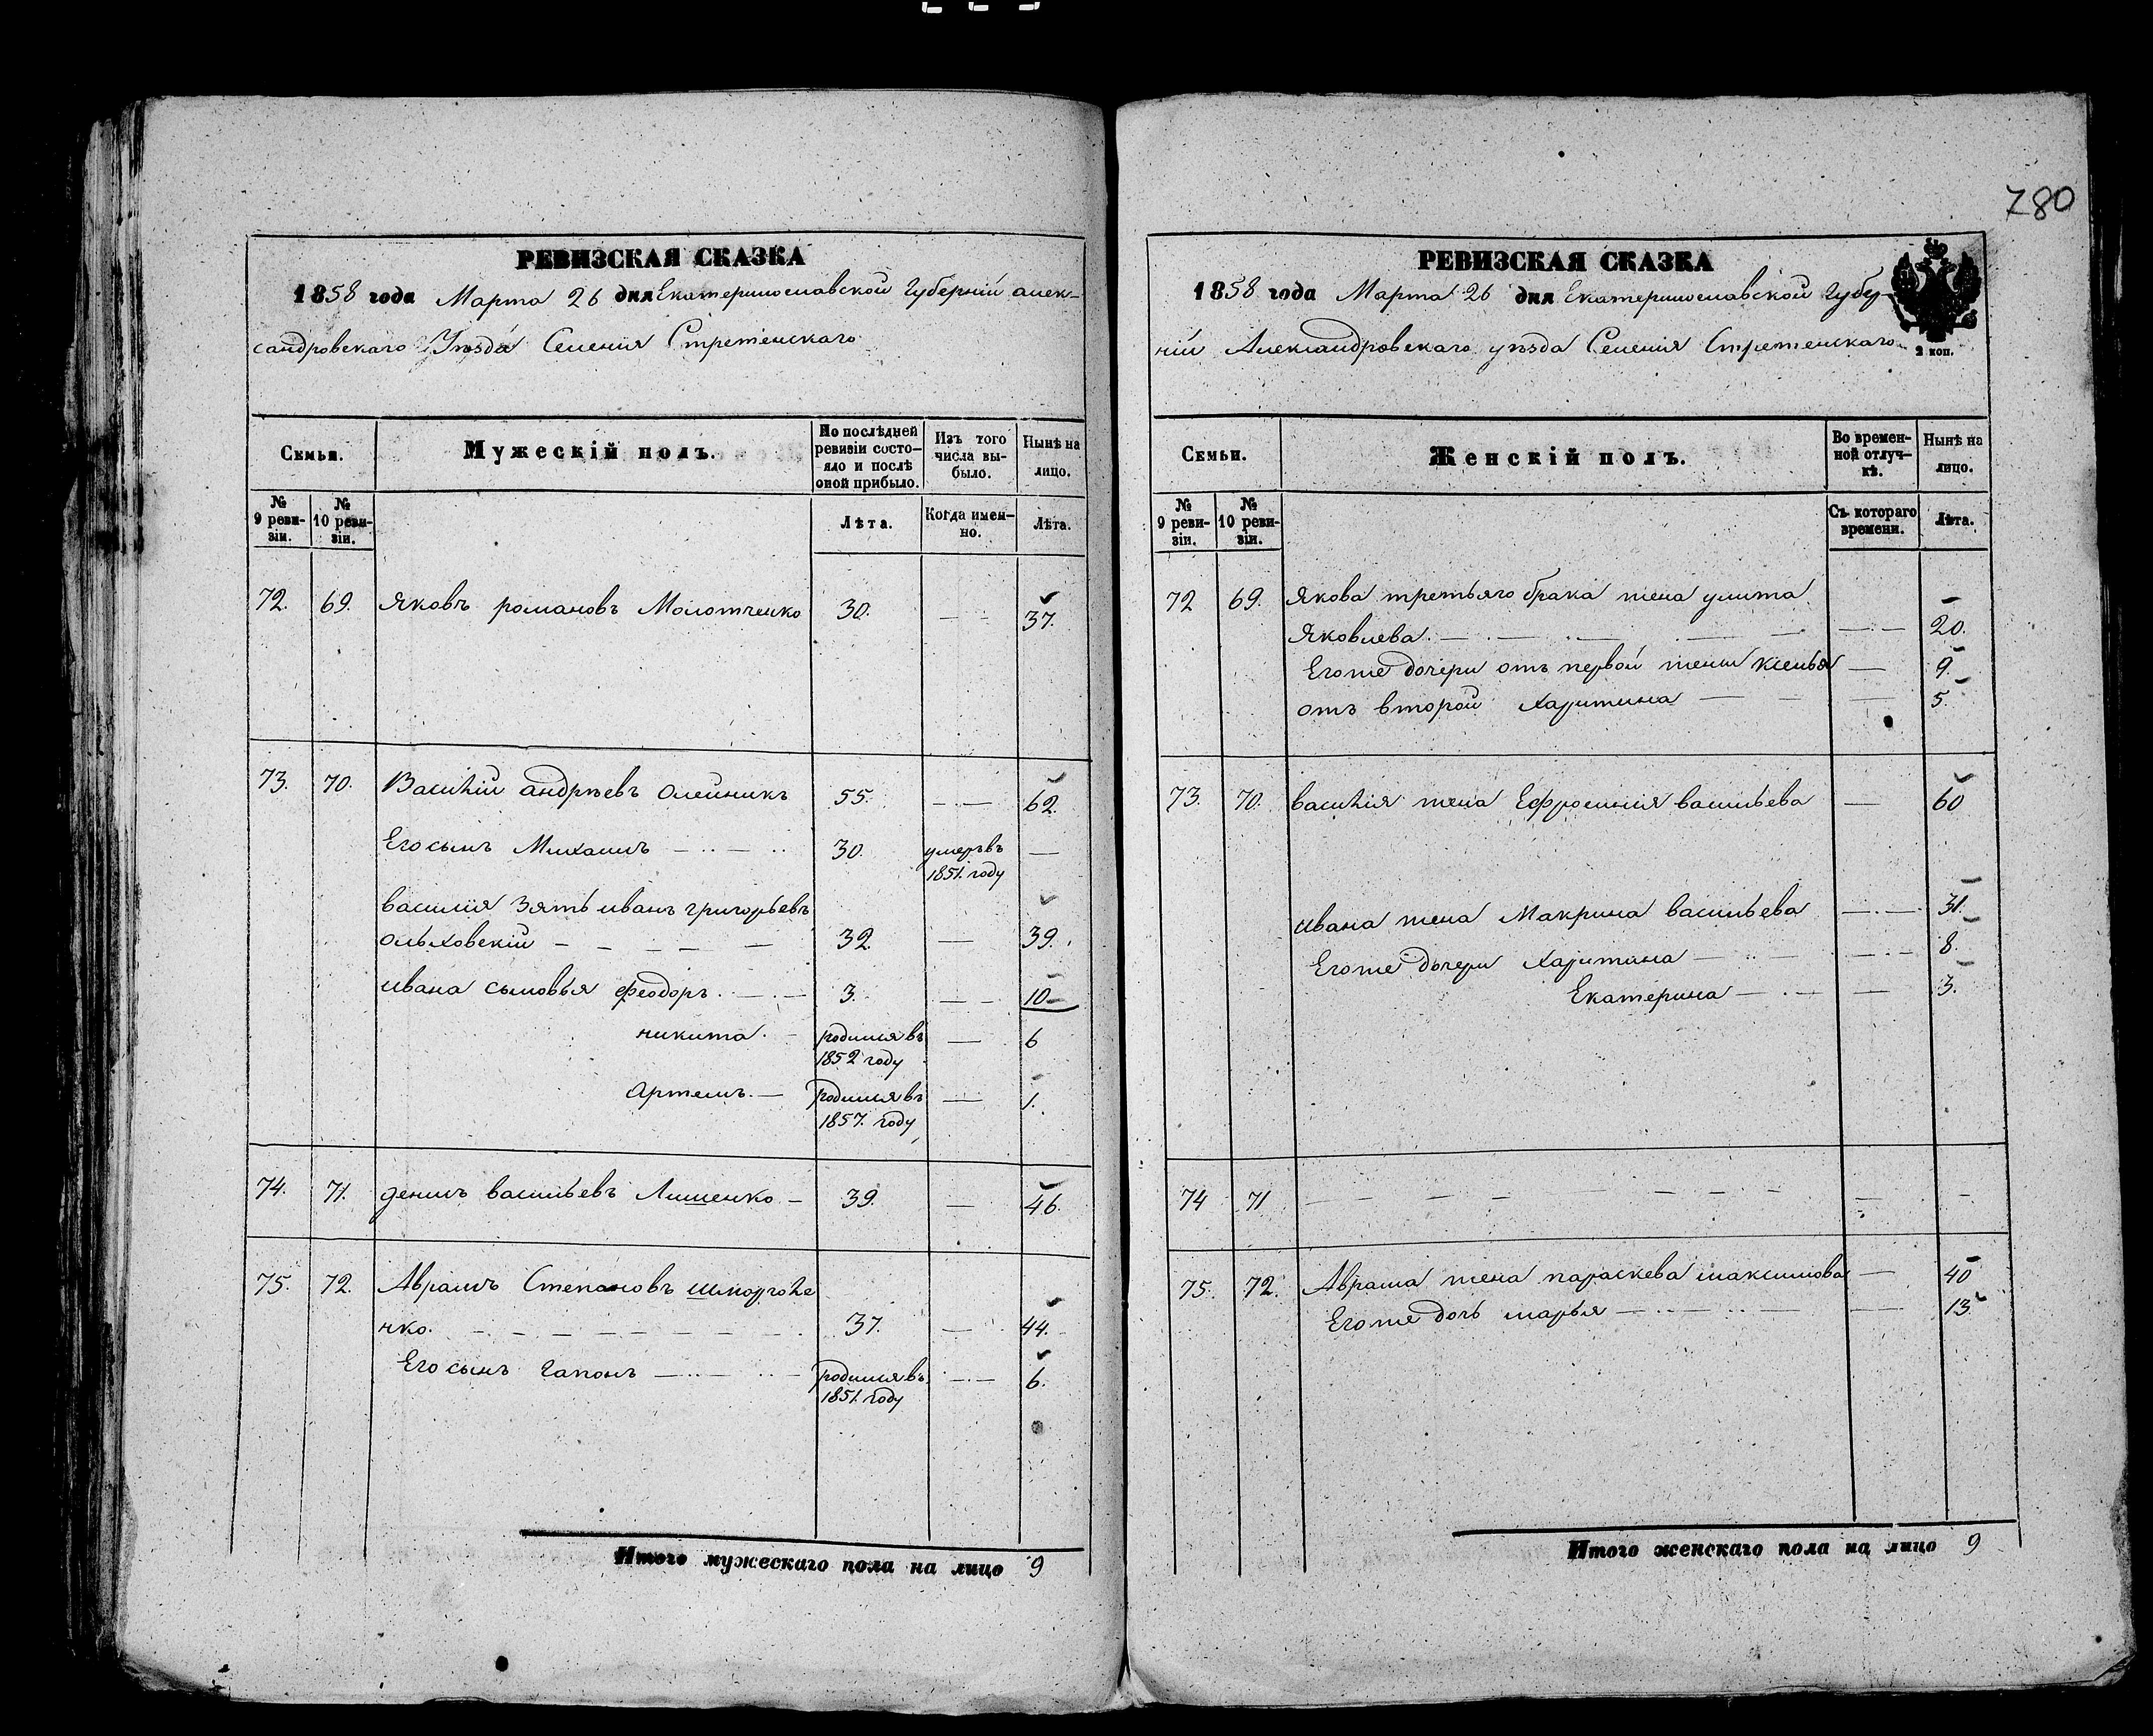 780
РЕВИЗСКАЯ СКАЗКА
1858 года Марта 26 дня Екатеринославской Губерніи алек-
сандровскаго Уѣзда Селенія Стретенскаго
Семьи.
Мужескій полъ.
По послѣдней ревизіи состо-яло и послѣ оной прибыло.
Изъ того числа вы-было.
Нынѣ на лицо.
№ 9 реви-зіи.
№ 10 реви-зіи.
Лѣта.
Когда имен-но.
Лѣта.
72. 69. Яковъ романовъ Молотченко 30. — 37.
73. 70. Василій андрѣевъ Олейникъ 55. — 62.
Его сынъ Михаилъ — 30. умеръ въ 1851. году —
василия зять иванъ григорьевъ
ольховскій — 32. — 39.
ивана сыновья феодоръ. — 3. — 10
никита. — родился въ 1852 году — 6
артемъ. — родился въ 1857. году — 1.
74. 71. денисъ васильевъ Лишенко — 39. — 46.
75. 72. Аврамъ Степановъ
нко. — 37. — 44.
Его сынъ гапонъ — родился въ 1851. году — 6.
Итого мужескаго пола на лицо 9
РЕВИЗСКАЯ СКАЗКА
1858 года Марта 26 дня Екатеринославской Губер-
ніи Александровскаго уѣзда Селенія Стретенскаго
2 коп.
Семьи.
Женскій полъ.
Во времен-ной отлуч-кѣ.
Нынѣ на лицо.
№ 9 реви-зіи.
№ 10 реви-зіи.
Съ котораго времени.
Лѣта.
72 69. Якова третьяго брака жена улита
Яковлева. — 20.
Егоже дочери отъ первой жены ксенья — 9.
отъ второй Харитина — 5.
73. 70. василія жена Ефросинія васильева — 60
ивана жена Макрина васильева — 31.
Егоже дочери Харитина — 8.
Екатерина — 3.
74 71 — — —
75. 72. Аврама жена параскева максимова — 40
Егоже дочь марья — 13.
Итого женскаго пола на лицо 9